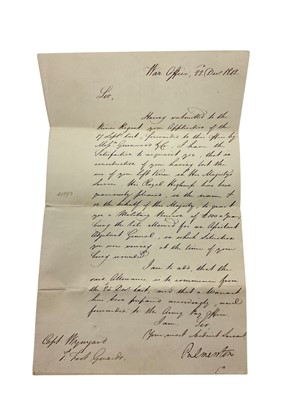 War Office, 22 Dec. 1813.
Sir,
Having submitted to the
Prince Regent your Application of the
17 Sept. last, forwarded to this Office by
Mess.rs Greenwood & Co. I have the
Satisfaction to acquaint you, that in
consideration of your having lost the
use of your left Arm in His Majesty's
Service, His Royal Highness has been
graciously pleased, in the name &
on the behalf of His Majesty, to grant
you a Pension of a Year,
being the rate allowed for an Assistant
Adjutant General, in which Situation
you were serving at the time of your
being wounded.
I am to add, that the
said Allowance is to commence from
the 25 Dec. last, and that a Warrant
has been prepared accordingly, and
forwarded to the Army Pay Office.
I am Sir
Your most Obedient Servant
Palmerston
Capt. Wynyard
1. Foot Guards.